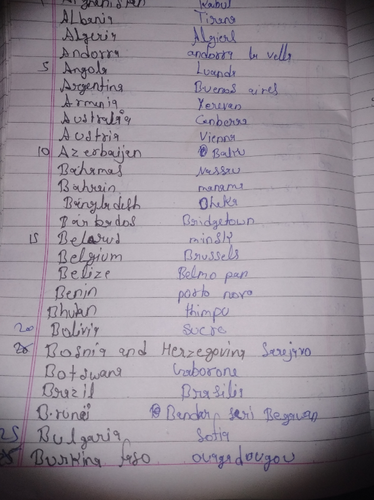 Afghanistan Kabul
Albania Tirana
Algeria Algierl
Andorra andorra la vella
5 Angola Luanda
Argentina Buenos aires
Armenia Yerevan
Australia Canberra
Austria Vienna
10 Azerbaijen Baku
Bahamas Nassau
Bahrain manama
Bangladesh Dhaka
Barbados Bridgetown
15 Belarus minsk
Belgium Brussels
Belize Belmo pan
Benin porto novo
Bhutan thimpu
20 Bolivia sucre
Bosnia and Herzegovina Sarajevo
Botswana Gaborone
Brazil Brasilia
Brunei Bandar seri Begawan
25 Bulgaria Sofia
Burkina faso ouagadougou